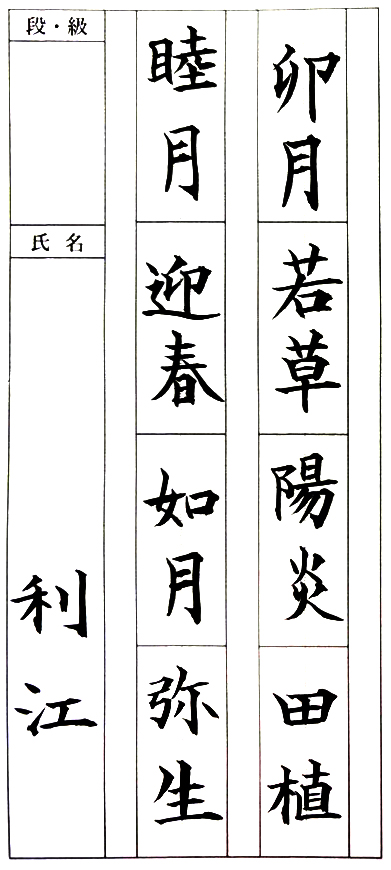 卯月若草陽炎田植
睦月迎春如月弥生
段・級
氏名
利江